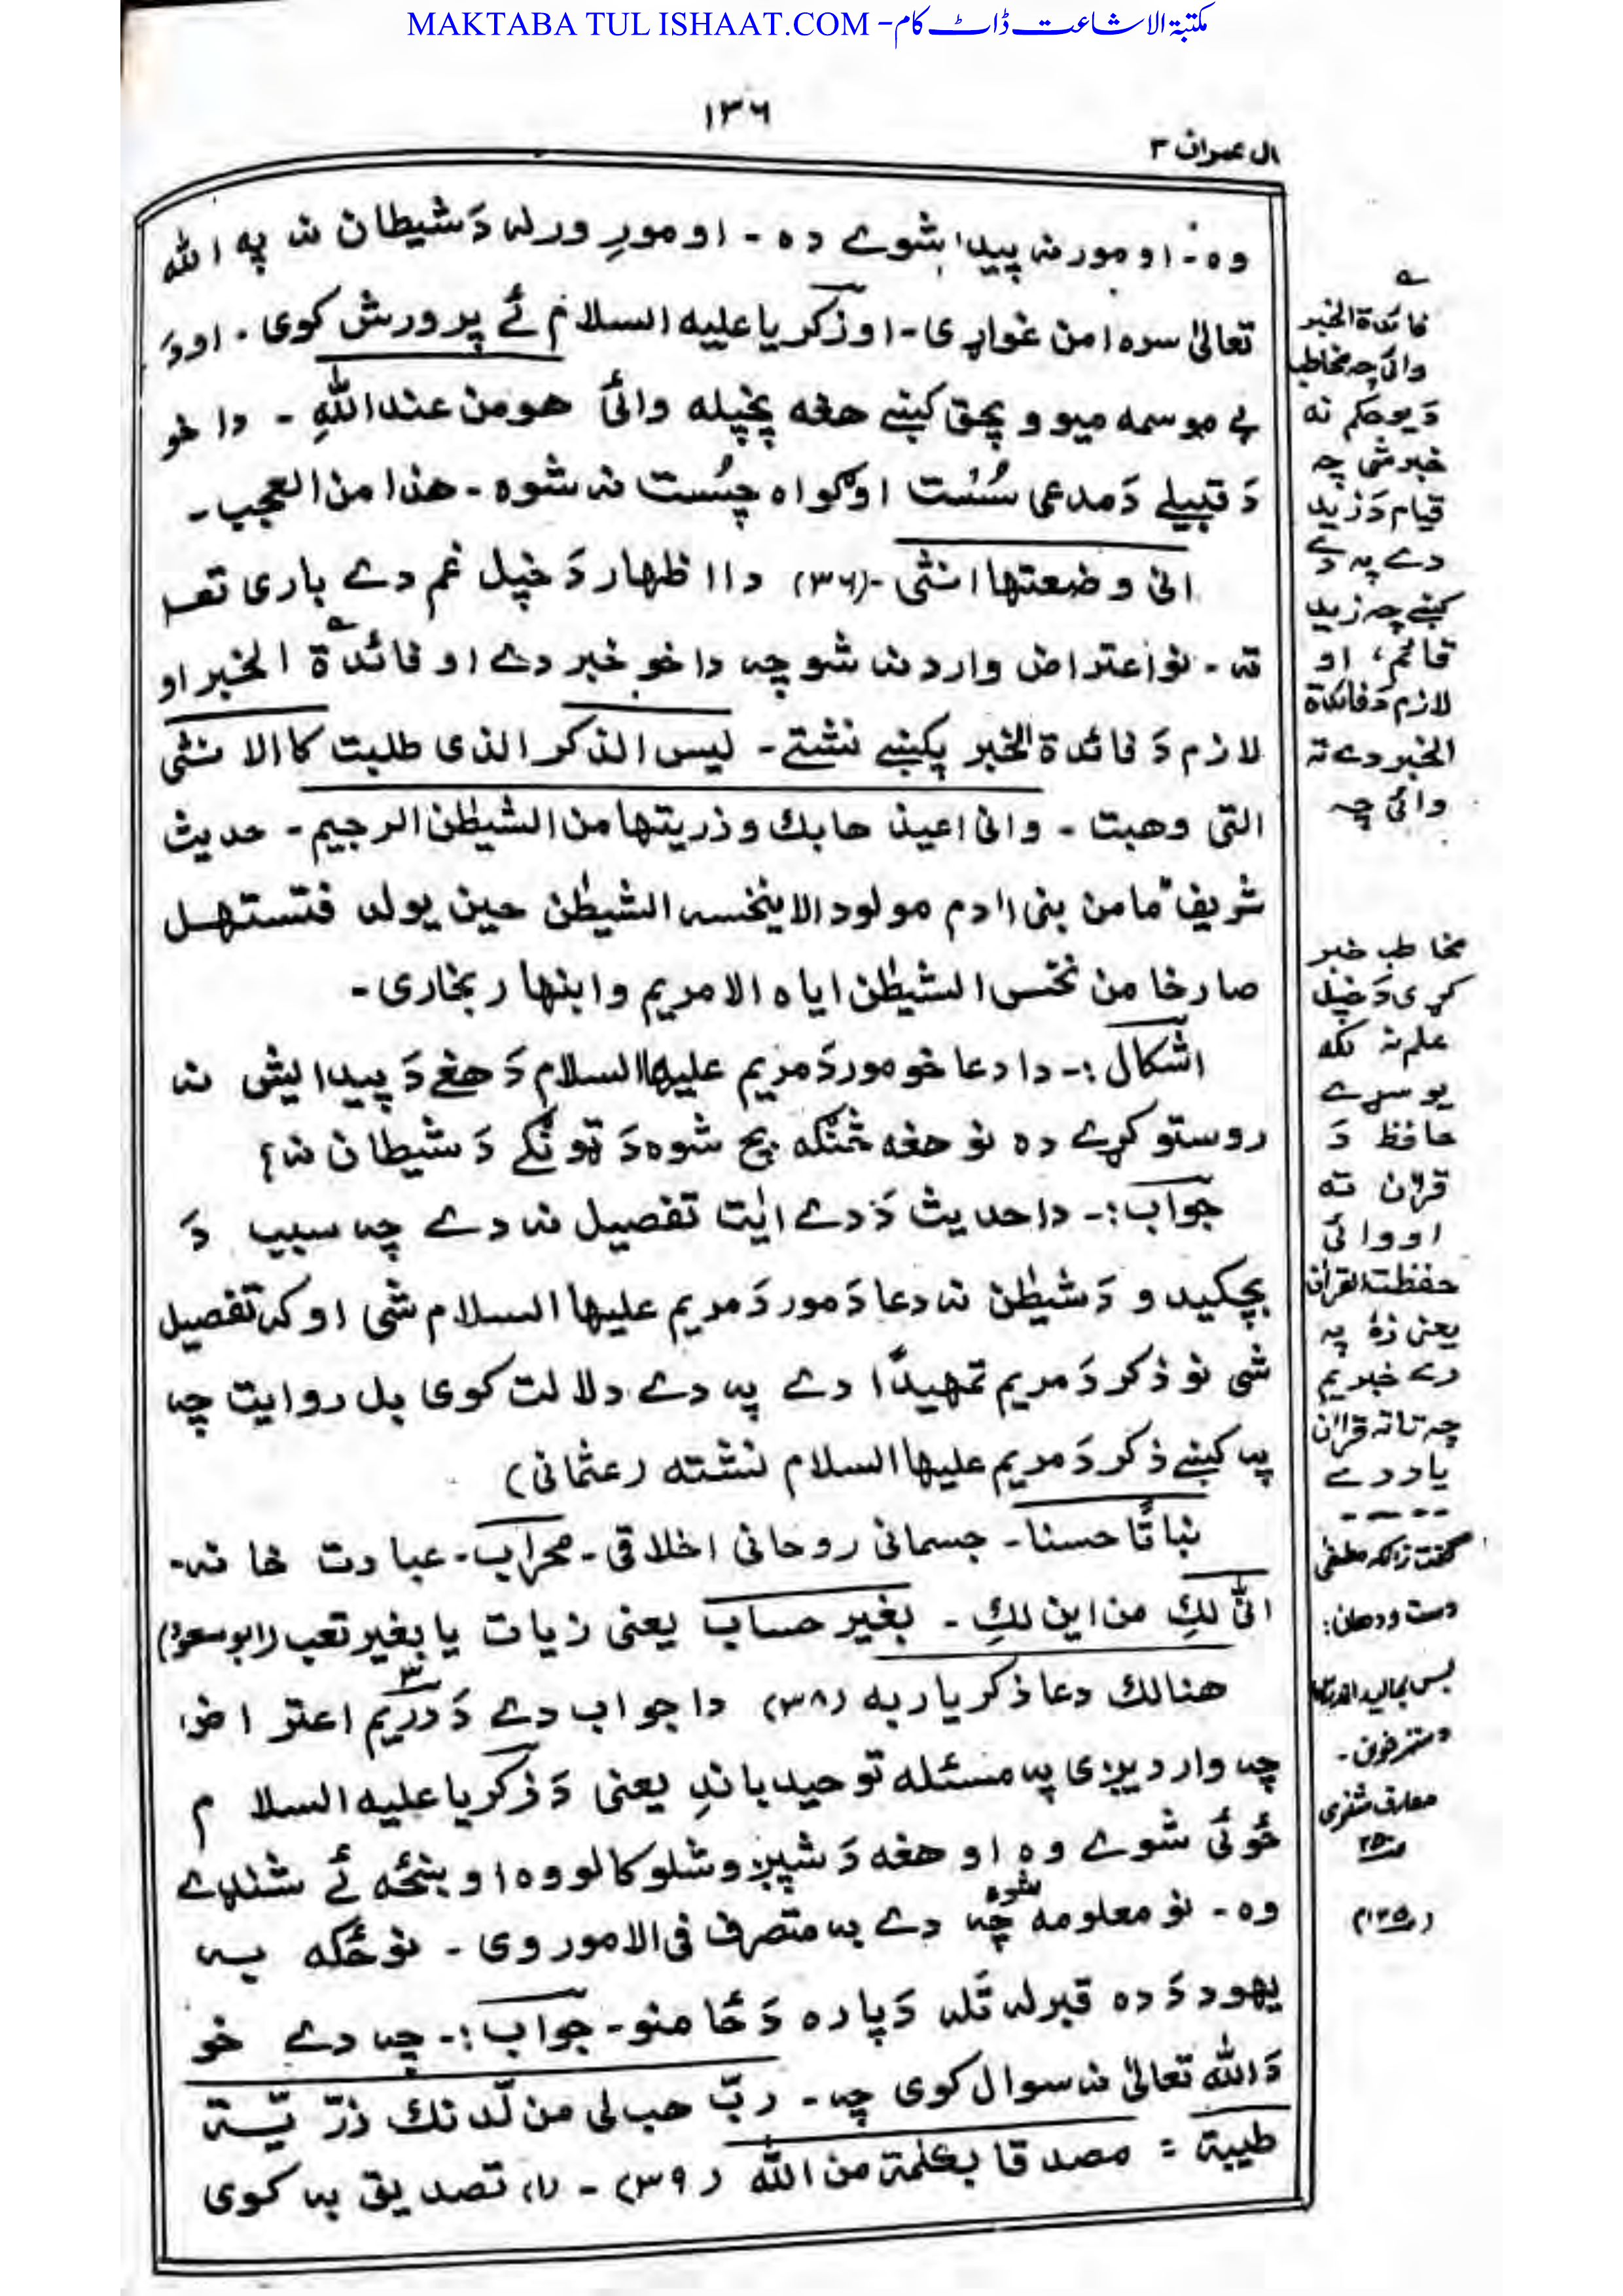 MAKTABA TUL ISHAAT.COM - مکتبۃ الاشاعت ڈاٹ کام
١٣٦
ال عمران ٣
وه - او مور نه پیدا شوے ده - او مورِ ورله دَ شیطان نه په الله
تعالیٰ سره امن غواړی - او زکریا علیه السلام ئے پرورش کوی . او دَ
بے موسمه میوو پچق کښے هغه پخپله وائی هو من عند اللهِ - دا خو
دَ قبیلے دَ مدعی سُست او ګواه چُست نه شوه - هذا من العجب -
انی وضعتها انثی - (٣٦) دا اظهار دَ خپل غم دے باری تعـ
ته - نو اعتراض وارد نه شو چه دا خو خبر دے او فائدة الخبر او
لازم دَ فائدة الخبر پکښے نشتے - لیس الذکر الذی طلبت کا الا نثی
التی وهبت - وانی اعیذ ها بك و ذریتها من الشیطٰن الرجیم - حدیث
شریف ما من بنی اادم مولود الا ینخسه الشیطٰن حین یولد فتستهل
صارخا من نخس الشیطٰن ایاه الا مریم وابنها ر بخاری -
اشکال :- دا دعا خو مور دَ مریم علیها السلام دَ هغے دَ پیدایش نه
روستو کړے ده نو هغه څنګه بچ شوه دَ ټونګے دَ شیطان نه؟
جواب :- دا حدیث دَ دے اٰیت تفصیل نه دے چه سبب دَ
بچکیدو دَ شیطٰن نه دعا دَ مور دَ مریم علیها السلام شی او که تفصیل
شی نو ذکر دَ مریم تمهیدًا دے په دے دلالت کوی بل روایت چه
په کښے ذکر دَ مریم علیها السلام نشته (عثمانی)
نباتًا حسنا - جسمانی روحانی اخلاقی - محراب - عبادت خانه -
انّٰی لكِ من این لكِ - بغیر حساب یعنی زیات یا بغیر تعب (ابو سعود)
هنالك دعا ذکریا ربه (٣٨) دا جواب دے دَ دریم اعتراض
٣
چه واردیږی په مسئله توحید باندِ یعنی دَ زکریا علیه السلام
ځوئی شوے وه او هغه دَ شپږ وشلو کالو وه او ښځه ئے شنډے
وه - نو معلومه شوه چه دے به متصرف فی الامور وی - نو ځکه به
یهود دَ ده قبر له تله دَ پاره دَ ځامنو - جواب :- چه دے خو
دَ الله تعالیٰ نه سوال کوی چه - ربّ هب لی من لّدنك ذرّیّة
طیبة = مصدقا بکلمة من الله ( ٣٩) - (١) تصدیق به کوی
فائدة الخبر
وائی چه مخاطب
دَ یو حکم نه
خبر شی چه
قیام دَ زید
دے په دے
کښے چه زید
قائم، او
لازم دَ فائدة
الخبر دے ته
وائی چه
مخاطب خبر
کړی دَ خپل
علم نه لکه
یو سړے
حافظ دَ
قران ته
او وائی
حفظت القران
یعنی زۀ په
دے خبر یم
چه تا ته قراٰن
یاد دے
----
دست و دهان :
معارف